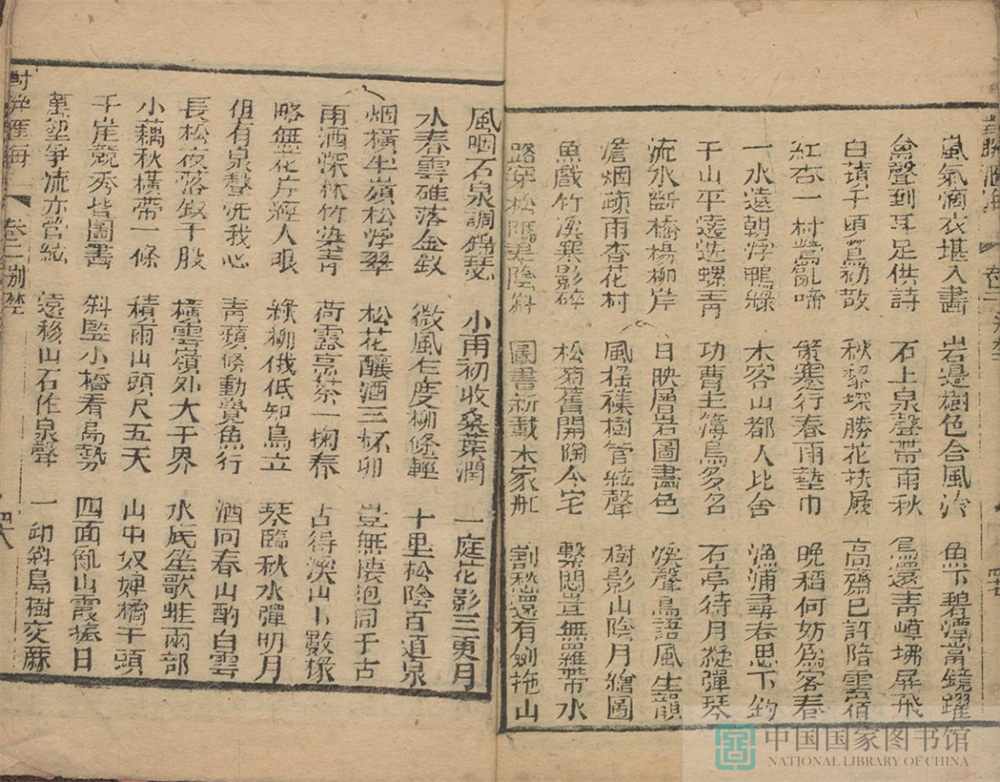 嵐氣滴衣堪入畫 岩邊樹色含風冷 魚下碧潭當鏡躍
禽聲到耳足供詩 石上泉聲帶雨秋 鳥還青嶂拂屏飛
千頃 初散 秋藜探勝花扶屐 高齋已許陪雲宿
紅杏一村鶯亂啼 策蹇行春雨墊巾 晚稻何妨為客舂
一水遠朝浮鴨綠 木客山都人比舍 漁浦尋春思下釣
千山平遠迭螺青 功曹主簿鳥多名 石亭待月擬彈琴
流水斷橋楊柳岸 日映層岩圖畫色 溪聲鳥語風生韻
澹烟疎雨杏花村 風搖襍樹管絃聲 樹影山陰月繪圖
魚戲竹溪寒影碎 松菊舊開陶令宅 繫悶豈無羅帶水
路穿松塢翠陰斜 圖書新載米家舡 割愁還有劍拖山
風咽石泉調錦瑟 小雨初收桑葉潤 一庭花影三更月
水舂雲碓落金釵 微風乍度柳條輕 十里松陰百道泉
烟橫半嶺松浮翠 松花釀酒三杯卯 豈無 同千古
雨洒深林竹染青 荷露烹茶一掬春 占得溪山卜數椽
略無花片經人眼 綠柳俄低知鳥立 琴臨秋水彈明月
但有泉聲洗我心 青蘋倏動覺魚行 酒向春山酌白雲
長松夜落釵千股 橫雲嶺外大千界 水底笙歌蛙兩部
小藕秋橫帶一條 積雨山頭尺五天 山中奴婢橘千頭
千崖競秀皆圖畫 斜監小橋看島勢 四面亂山霞振日
萬壑爭流亦管絃 遠移山石作泉聲 一 斜島樹交蔴
對聯匯海 卷二 別墅 四八
中国国家图书馆
NATIONAL LIBRARY OF CHINA